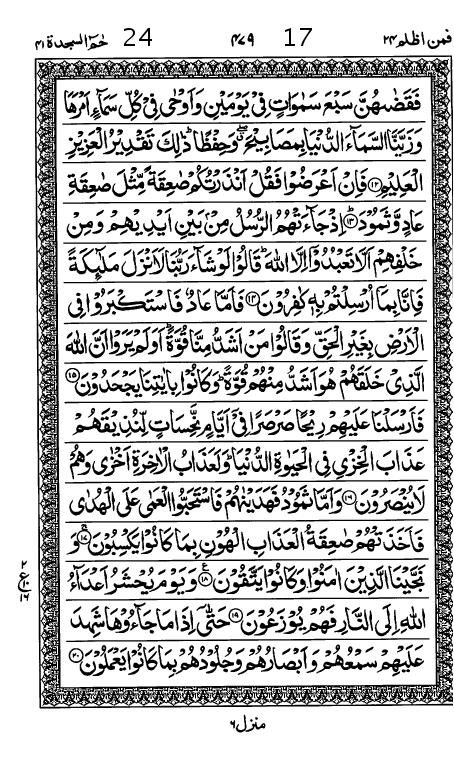 فمن اظلم ۲۴ 17 ۴۷۹ 24 حٰمٓ السجدة ۴۱
فَقَضٰىهُنَّ سَبْعَ سَمٰوَاتٍ فِیْ یَوْمَیْنِ وَاَوْحٰی فِیْ كُلِّ سَمَآءٍ اَمْرَهَا
وَزَیَّنَّا السَّمَآءَ الدُّنْیَا بِمَصَابِیْحَ ۖ وَحِفْظًا ؕ ذٰلِكَ تَقْدِیْرُ الْعَزِیْزِ
الْعَلِیْمِ ۝۱۲ فَاِنْ اَعْرَضُوْا فَقُلْ اَنْذَرْتُكُمْ صٰعِقَةً مِّثْلَ صٰعِقَةِ
عَادٍ وَّثَمُوْدَ ؕ۝۱۳ اِذْ جَآءَتْهُمُ الرُّسُلُ مِنْۢ بَیْنِ اَیْدِیْهِمْ وَمِنْ
خَلْفِهِمْ اَلَّا تَعْبُدُوْۤا اِلَّا اللّٰهَ ؕ قَالُوْا لَوْ شَآءَ رَبُّنَا لَاَنْزَلَ مَلٰٓىِٕكَةً
فَاِنَّا بِمَاۤ اُرْسِلْتُمْ بِهٖ كٰفِرُوْنَ ۝۱۴ فَاَمَّا عَادٌ فَاسْتَكْبَرُوْا فِی
الْاَرْضِ بِغَیْرِ الْحَقِّ وَقَالُوْا مَنْ اَشَدُّ مِنَّا قُوَّةً ؕ اَوَلَمْ یَرَوْا اَنَّ اللّٰهَ
الَّذِیْ خَلَقَهُمْ هُوَ اَشَدُّ مِنْهُمْ قُوَّةً ؕ وَكَانُوْا بِاٰیٰتِنَا یَجْحَدُوْنَ ۝۱۵
فَاَرْسَلْنَا عَلَیْهِمْ رِیْحًا صَرْصَرًا فِیْۤ اَیَّامٍ نَّحِسَاتٍ لِّنُذِیْقَهُمْ
عَذَابَ الْخِزْیِ فِی الْحَیٰوةِ الدُّنْیَا ؕ وَلَعَذَابُ الْاٰخِرَةِ اَخْزٰی وَهُمْ
لَا یُنْصَرُوْنَ ۝۱۶ وَاَمَّا ثَمُوْدُ فَهَدَیْنٰهُمْ فَاسْتَحَبُّوا الْعَمٰی عَلَی الْهُدٰی
فَاَخَذَتْهُمْ صٰعِقَةُ الْعَذَابِ الْهُوْنِ بِمَا كَانُوْا یَكْسِبُوْنَ ۚ۝۱۷ وَ
نَجَّیْنَا الَّذِیْنَ اٰمَنُوْا وَكَانُوْا یَتَّقُوْنَ ۠۝۱۸ وَیَوْمَ یُحْشَرُ اَعْدَآءُ
اللّٰهِ اِلَی النَّارِ فَهُمْ یُوْزَعُوْنَ ۝۱۹ حَتّٰۤی اِذَا مَا جَآءُوْهَا شَهِدَ
عَلَیْهِمْ سَمْعُهُمْ وَاَبْصَارُهُمْ وَجُلُوْدُهُمْ بِمَا كَانُوْا یَعْمَلُوْنَ ۝۲۰
منزل ۶